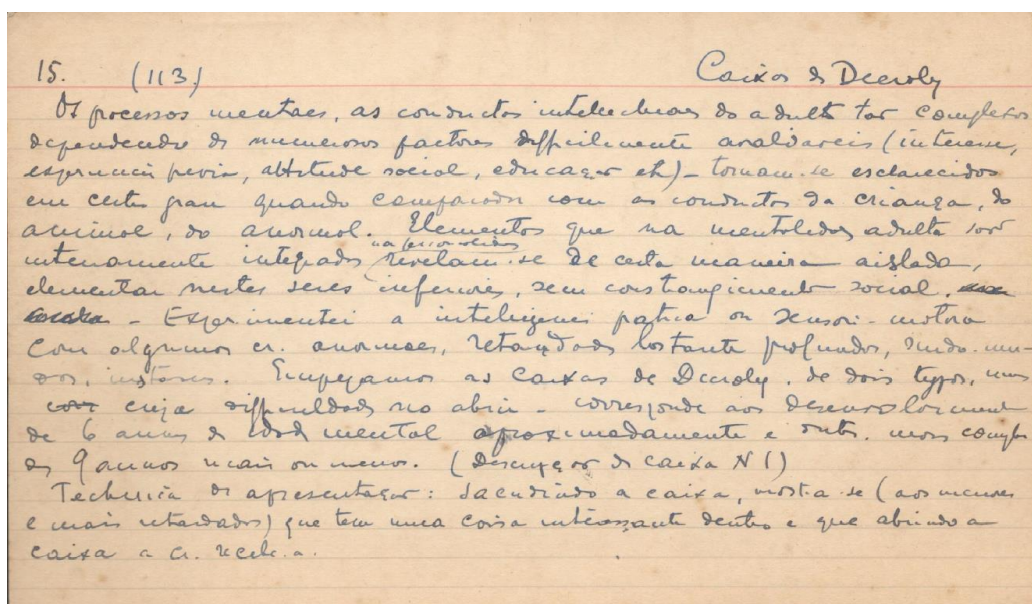 15. (113) Caixas de Decroly
Os processos mentaes, as conductas intellectuaes do adulto tão complexos
dependendo de numerosos factores difficilmente analisaveis (interesse,
experiencia previa, attitude social, educação etc) - tornam-se esclarecidos
em certo grau quando comparados com as conductas da criança, do
animal, do anormal. Elementos que na mentalidade adulta são
intensamente integrados na personalidade revelam-se de certa maneira aislada,
elementar nestes seres inferiores, sem constrangimento social.
- Experimentei a inteligencia pratica ou sensori-motora
com algumas cr. anormaes, retardados bastante profundos, surdo-mu-
dos, instaveis. Empregamos as caixas de Decroly, de dois typos, umas
cuja difficuldade no abrir - corresponde aos desenvolvimento
de 6 annos de idade mental aproximadamente e outra mais complexa
de 9 annos mais ou menos. (Descripção da caixa N 1)
Technica de apresentação: Sacudindo a caixa, mostra-se (aos menores
e mais retardados) que tem uma coisa interessante dentro e que abrindo a
caixa a cr. recebe-a.